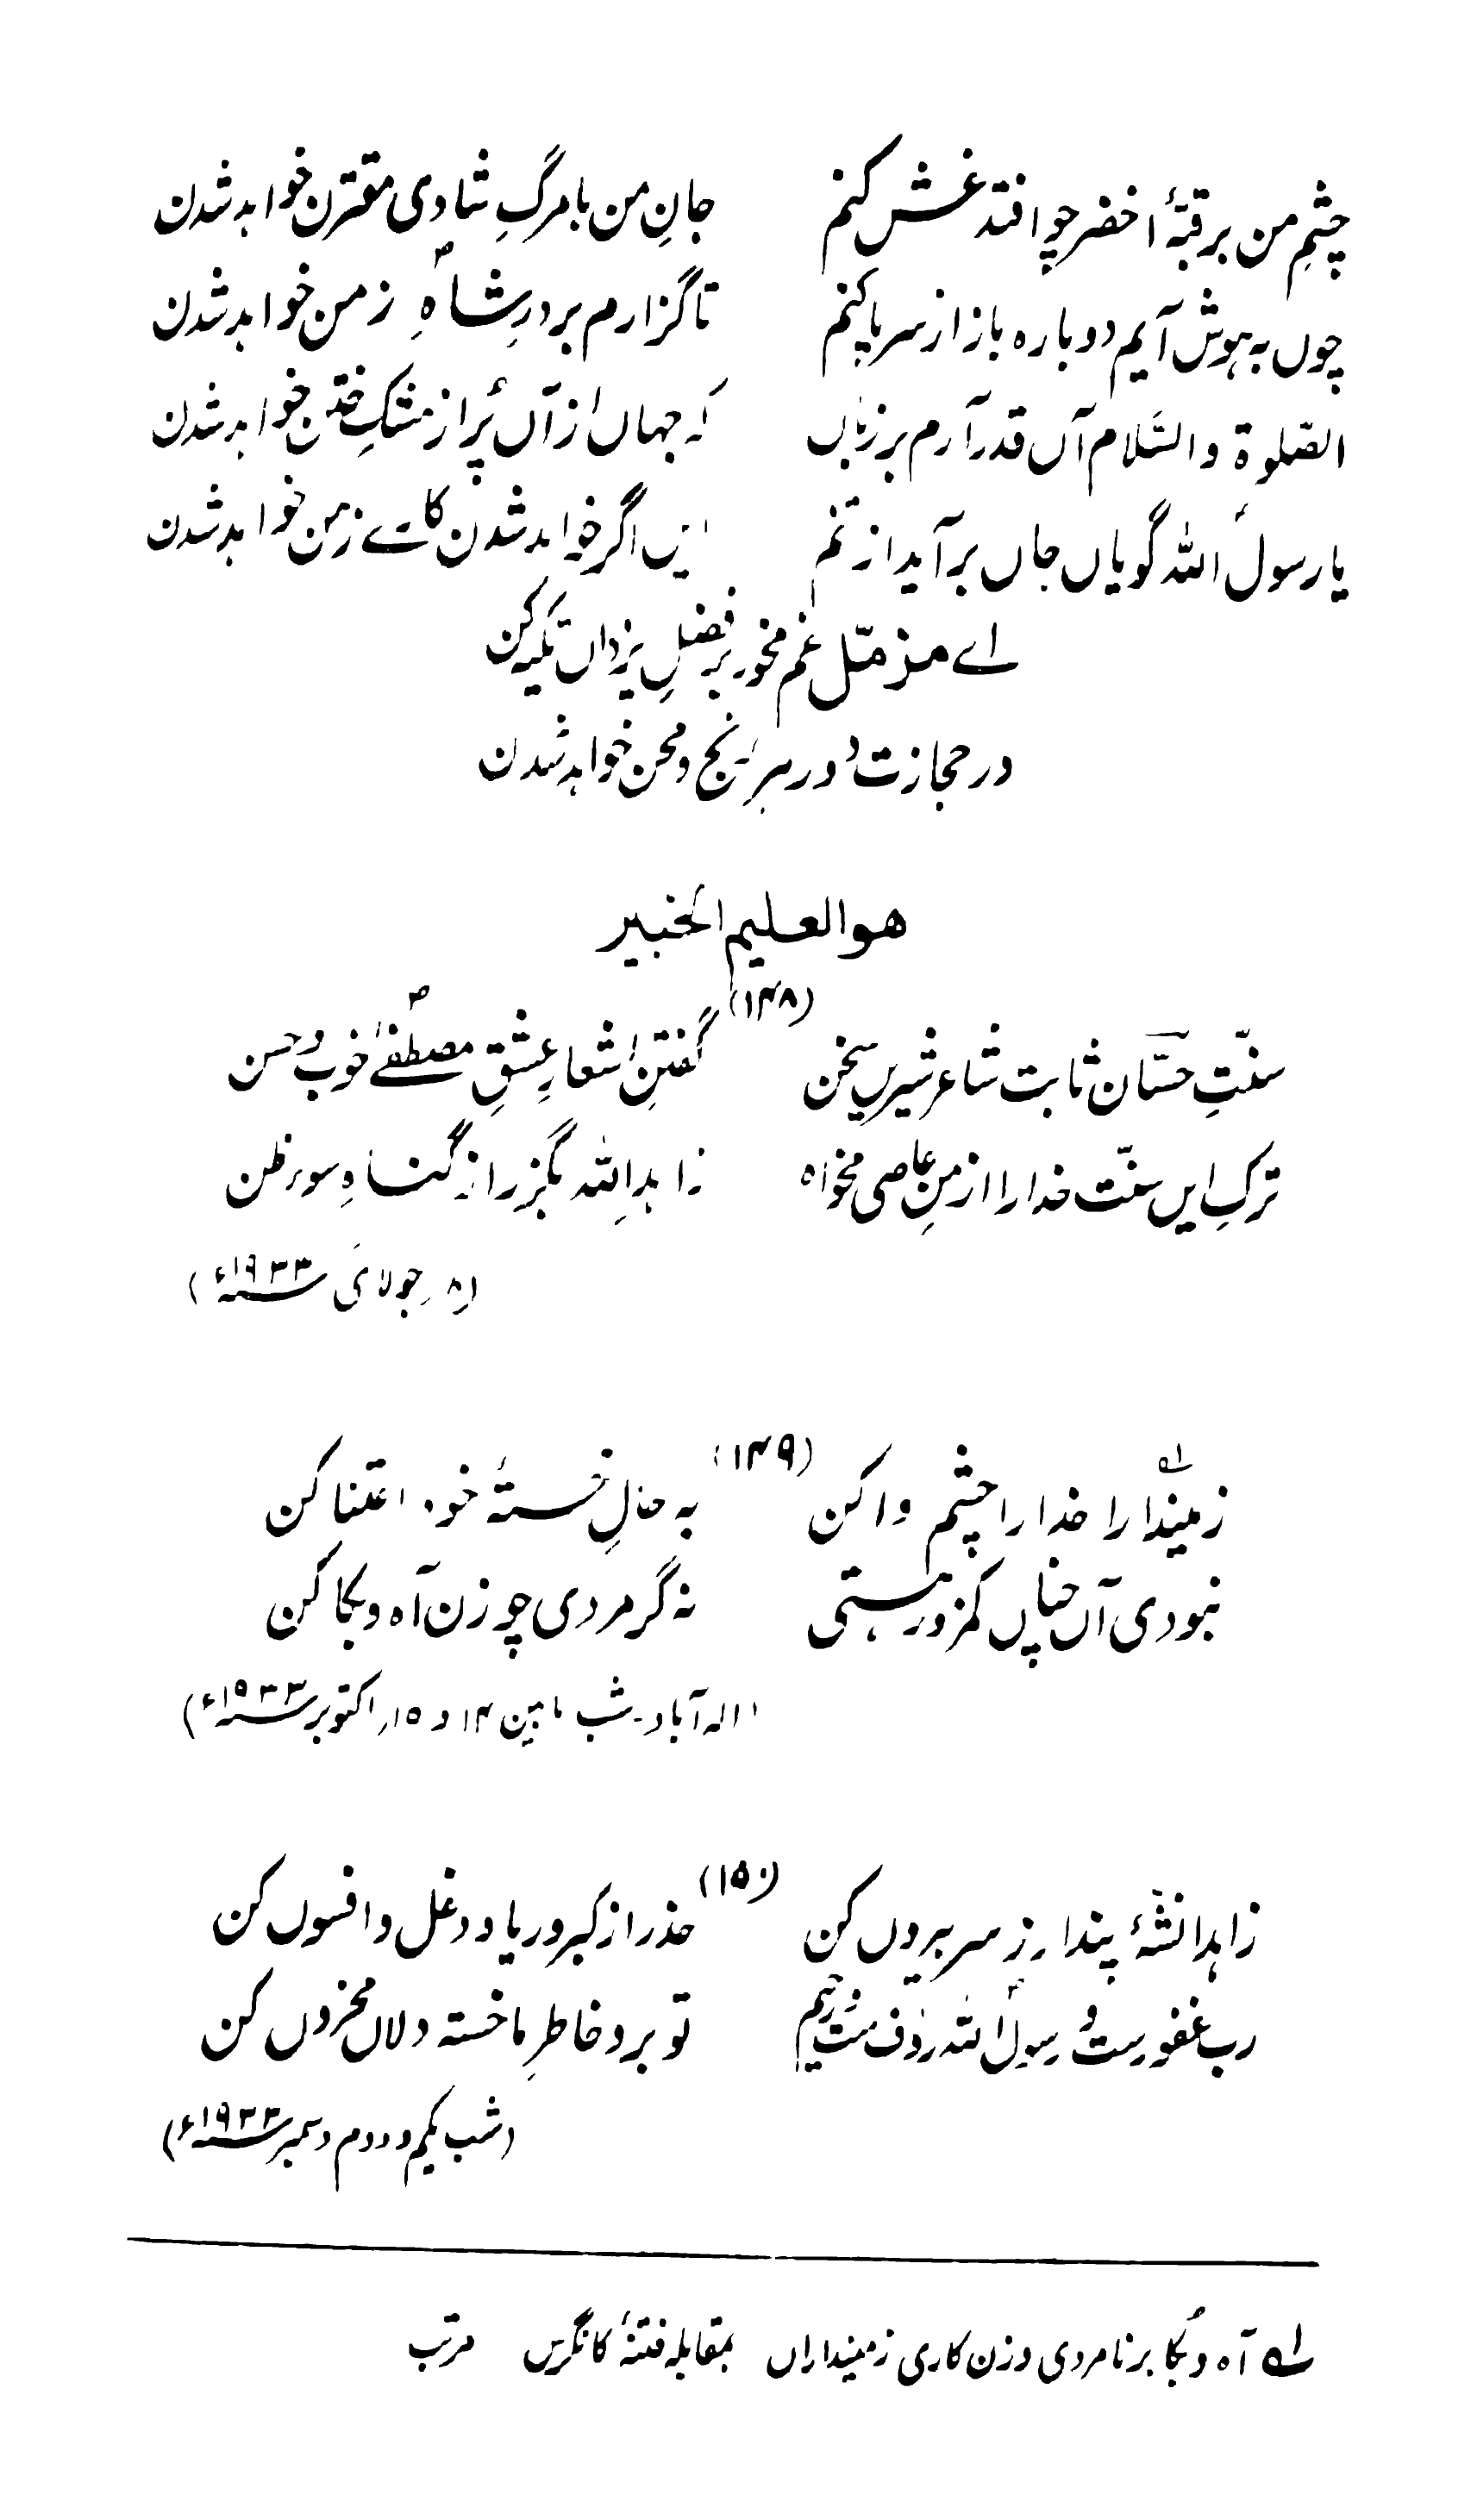 چشمِ من بر قبّۂ اخضر چو افتد غش کنم جانِ من با مرگِ شادی مقترن خواہد شدن
چوں بہ ہوش آیم دوبارہ باز از سر پا کنم تا گزارم بر درِ شاہِؐ زمن خواہد شدن
الصّلوۃ والسّلام آں قدر آرم بر زباں کہ جہاں از آں پُر از مشکِ ختن خواہد شدن
یا رسولؐ اللہ گویاں جاں بر آید از تنم ایں اگر خواہد شدن کاے ز من خواہد شدن
اے مزمّل غم مخور بر فضلِ یزداں تکیہ کن
در حجازت دور ہر رنج و محن خواہد شدن
ھو العلیم الخبیر
(۱۴۸)
سنّتِ حسّان ثابت شاعرِ شیریں سخن گفتنِ اشعارِ عشقِ مصطفےٰؐ خوب و حسن
ترکِ ایں سنّت خدارا از منِ عاصی مخواہ زاہدا للہ بگزر از گناہِ سوء ظن
(۸ جولائی ۱۹۳۳ء)
(۱۴۹)
زمیندارا خدارا چشم وا کن لہ بہ حالِ خستۂ خود اعتنا کن
نبودی آں چناں کز در ہستی نہ گر مردی چو زن آہ و بکا کن
(الہ آباد۔ شب مابین ۱۴ و ۱۵ اکتوبر ۱۹۳۳ء)
(۱۵۰)
زاہدا نشّۂ پندار ز سر بیروں کن حذر از کبر و ریا و دغل و افسوں کن
رب غفورست و رسولؐ اللہ رؤف ست و رحیم تو برو خاطرِ ما خستہ دلاں محزوں کن
(شب یکم و دوم دسمبر ۱۹۳۳ء)
لہ آہ و بُکا بر نامردی و زن کاری زمینداراں بمقابلہ فتنۂ کانگرس مرتب